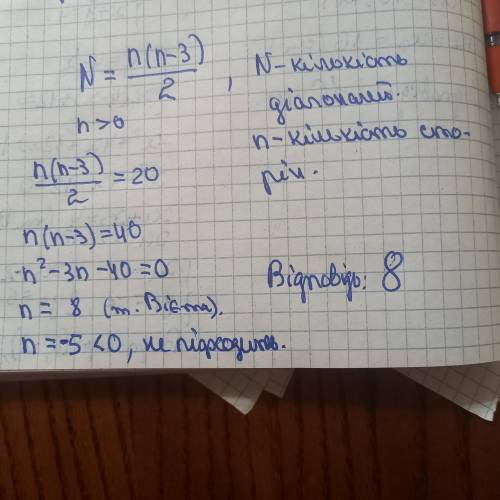 N = n(n-3)/2 , N - кількість
діагоналей.
n > 0
n - кількість сто-
рін.
n(n-3)/2 = 20
n(n-3) = 40
n² - 3n - 40 = 0
n = 8 (т. Вієта).
n = -5 < 0, не підходить.
Відповідь: 8